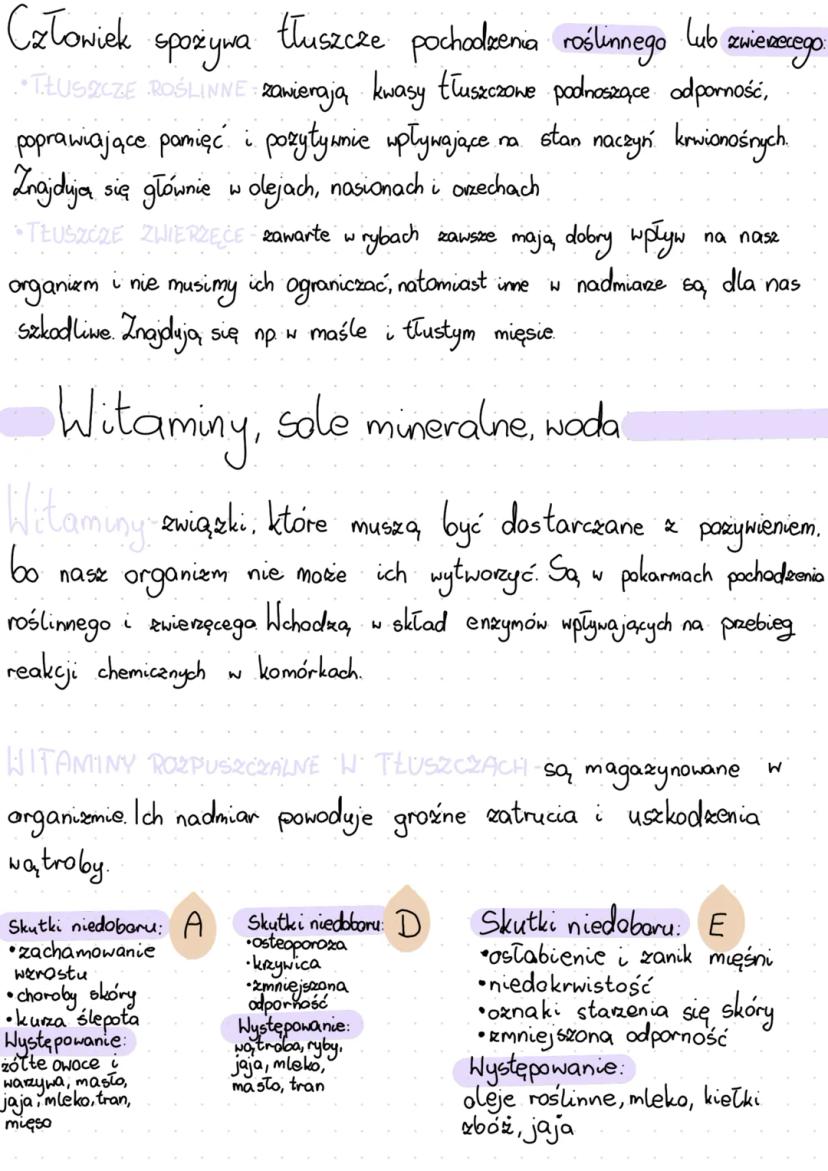 Człowiek spożywa tłuszcze pochodzenia roślinnego lub zwierzęcego:
•TŁUSZCZE ROŚLINNE- zawierają kwasy tłuszczowe podnoszące odporność,
poprawiające pamięć i pozytywnie wpływające na stan naczyń krwionośnych.
Znajdują się głównie w olejach, nasionach i orzechach
•TŁUSZCZE ZWIERZĘCE- zawarte w rybach zawsze mają dobry wpływ na nasz
organizm i nie musimy ich ograniczać, natomiast inne w nadmiarze są dla nas
szkodliwe. Znajdują się np. w maśle i tłustym mięsie.
Witaminy, sole mineralne, woda
Witaminy- związki, które muszą być dostarczane z pożywieniem,
bo nasz organizm nie może ich wytworzyć. Są w pokarmach pochodzenia
roślinnego i zwierzęcego. Wchodzą w skład enzymów wpływających na przebieg
reakcji chemicznych w komórkach.
WITAMINY ROZPUSZCZALNE W TŁUSZCZACH- są magazynowane w
organizmie. Ich nadmiar powoduje groźne zatrucia i uszkodzenia
wątroby.
Skutki niedoboru: A
•zachamowanie
wzrostu
•choroby skóry
•kurza ślepota
Występowanie:
żółte owoce i
warzywa, masło,
jaja, mleko, tran,
mięso
Skutki niedoboru: D
•osteoporoza
•krzywica
•zmniejszona
odporność
Występowanie:
wątroba, ryby,
jaja, mleko,
masło, tran
Skutki niedoboru: E
•osłabienie i zanik mięśni
•niedokrwistość
•oznaki starzenia się skóry
•zmniejszona odporność
Występowanie:
oleje roślinne, mleko, kiełki
zbóż, jaja